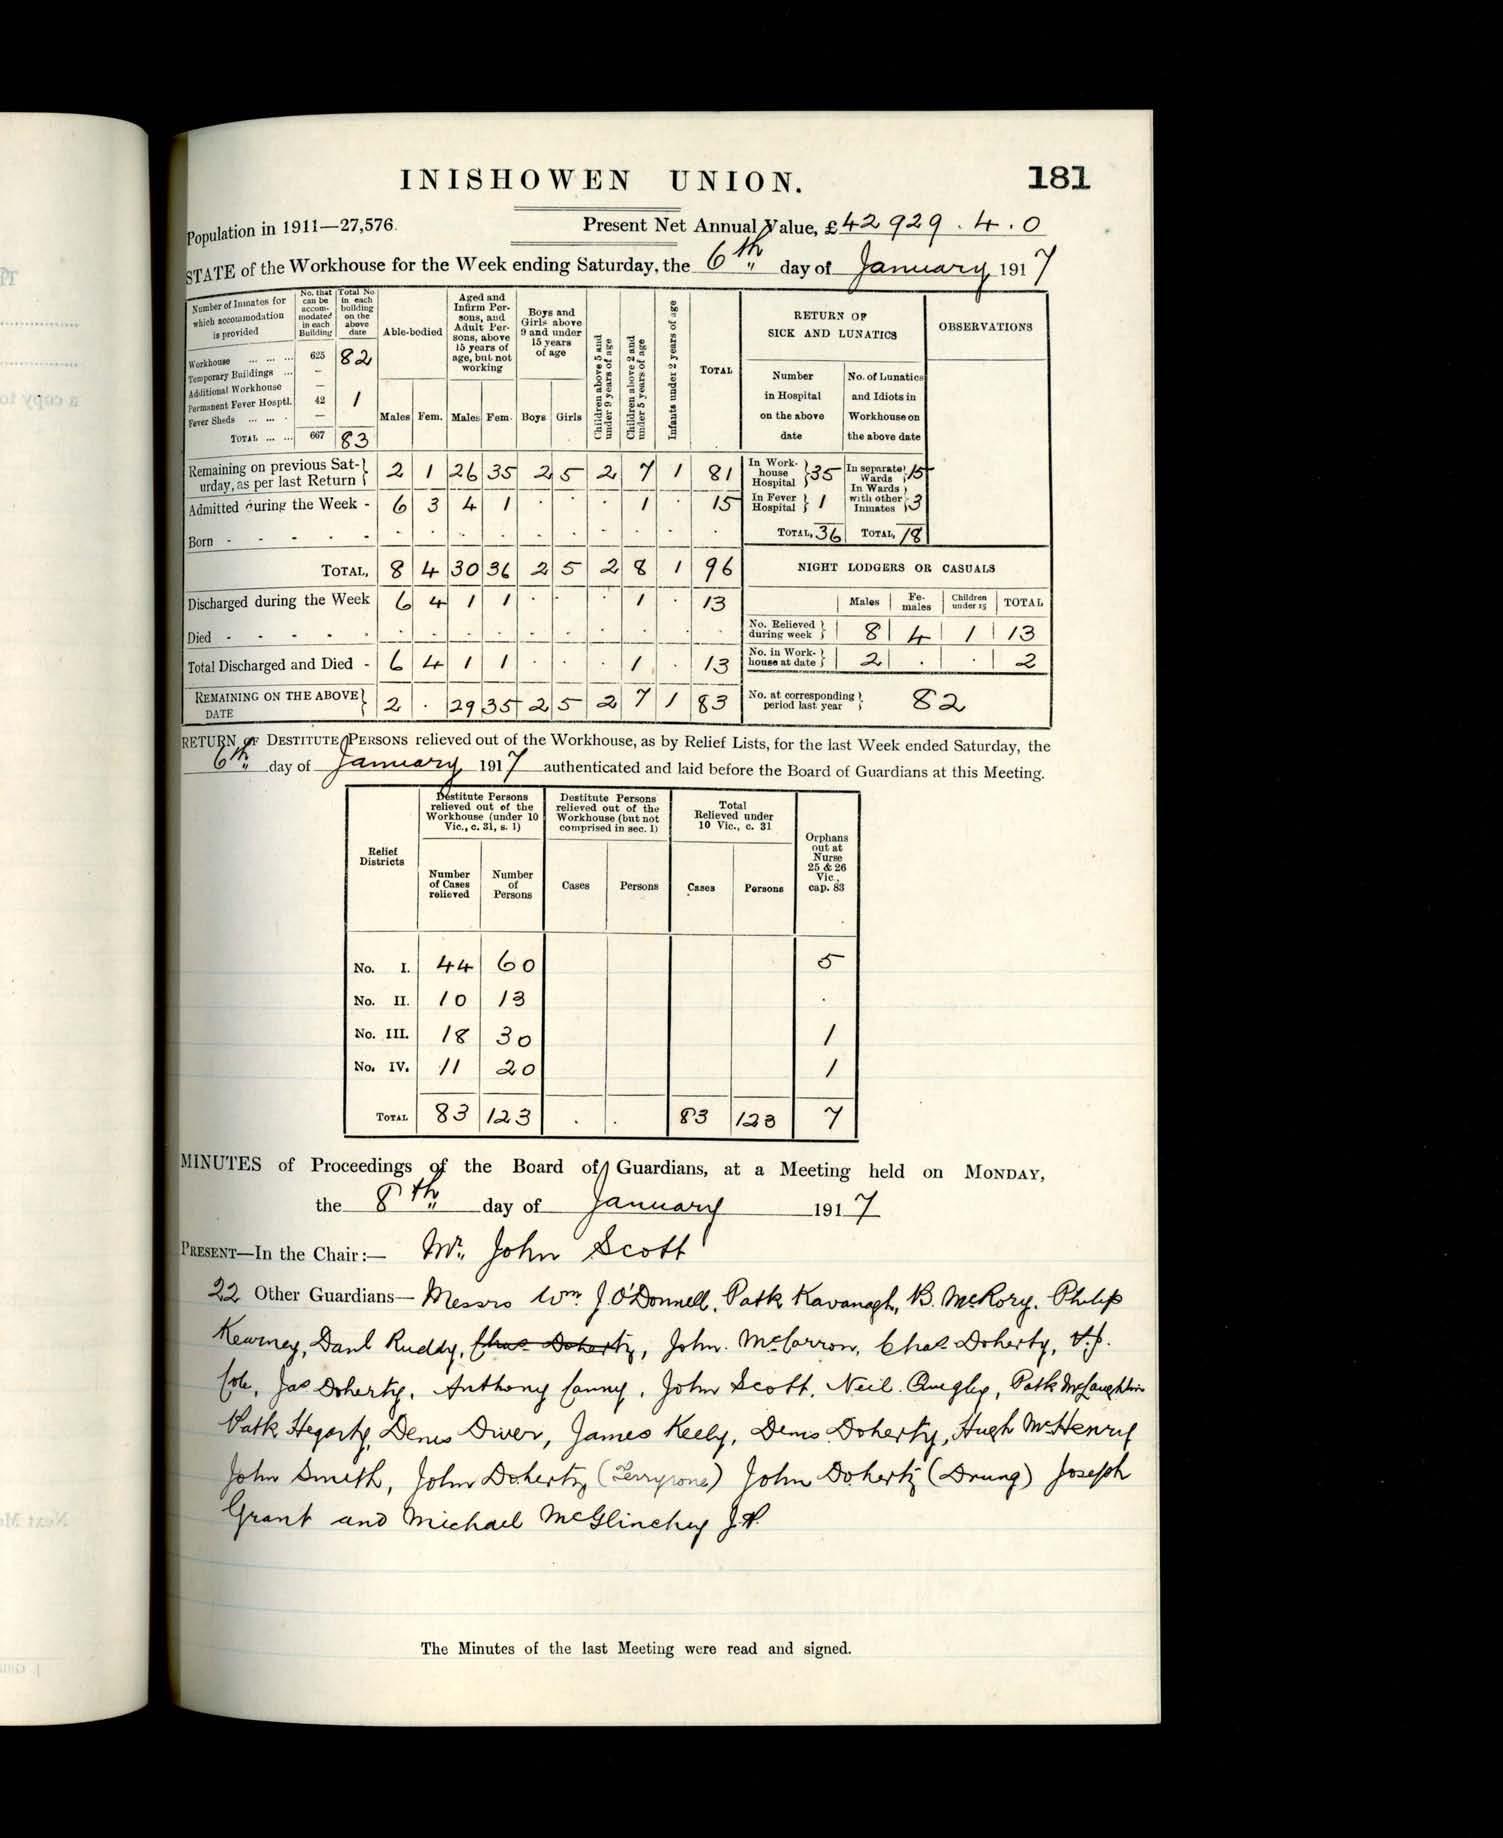 INISHOWEN UNION. 181
Population in 1911—27,576. Present Net Annual Value, £42929.4.0
STATE of the Workhouse for the Week ending Saturday, the 6th day of January 1917
Number of Inmates for which accommodation is provided | No. that can be accommodated in each Building | Total No in each building on the above date
Workhouse ... ... ... 625 82
Temporary Buildings ... — –
Additional Workhouse —
Permanent Fever Hosptl. 42 1
Fever Sheds ... ... . —
TOTAL ... ... 667 83
Able-bodied | Aged and Infirm Persons, and Adult Persons, above 15 years of age, but not working | Boys and Girls above 9 and under 15 years of age | Children above 5 and under 9 years of age | Children above 2 and under 5 years of age | Infants under 2 years of age | TOTAL
Males Fem. Males Fem. Boys Girls
Remaining on previous Saturday, as per last Return 2 1 26 35 2 5 2 7 1 81
Admitted during the Week - 6 3 4 1 . . . 1 . 15
Born - - - - - . . . . . . . . . .
TOTAL, 8 4 30 36 2 5 2 8 1 96
Discharged during the Week 6 4 1 1 . . . 1 . 13
Died - - - - - . . . . . . . . . .
Total Discharged and Died - 6 4 1 1 . . . 1 . 13
REMAINING ON THE ABOVE DATE 2 . 29 35 2 5 2 7 1 83
RETURN OF SICK AND LUNATICS | OBSERVATIONS
Number in Hospital on the above date | No. of Lunatics and Idiots in Workhouse on the above date
In Workhouse Hospital } 35 In separate Wards } 15
In Fever Hospital } 1 In Wards with other Inmates } 3
TOTAL, 36 TOTAL, 18
NIGHT LODGERS OR CASUALS
Males | Females | Children under 15 | TOTAL
No. Relieved during week } 8 4 1 13
No. in Workhouse at date } 2 . . 2
No. at corresponding period last year } 82
RETURN OF DESTITUTE PERSONS relieved out of the Workhouse, as by Relief Lists, for the last Week ended Saturday, the
6th day of January 1917 authenticated and laid before the Board of Guardians at this Meeting.
Relief Districts | Destitute Persons relieved out of the Workhouse (under 10 Vic., c. 31, s. 1) | Destitute Persons relieved out of the Workhouse (but not comprised in sec. 1) | Total Relieved under 10 Vic., c. 31 | Orphans out at Nurse 25 & 26 Vic., cap. 83
Number of Cases relieved | Number of Persons | Cases | Persons | Cases | Persons
No. I. 44 60 5
No. II. 10 13 .
No. III. 18 30 1
No. IV. 11 20 1
TOTAL 83 123 . . 83 123 7
MINUTES of Proceedings of the Board of Guardians, at a Meeting held on MONDAY,
the 8th day of January 1917
PRESENT—In the Chair:— Mr. John Scott
22 Other Guardians— Messrs Wm. J. O'Donnell, Patk Kavanagh, B. McRory, Philip
Kearney, Danl Ruddy, Chas Doherty, John. McCarron, Chas Doherty,
Cole, Jas Doherty, Anthony Canny, John Scott, Neil Quigley, Patk McLaughlin
Patk Hegarty, Denis Diver, James Keely, Denis Doherty, Hugh McHenry
John Smith, John Doherty John Doherty (Drung) Joseph
Grant and Michael McGlinchey J.P.
The Minutes of the last Meeting were read and signed.